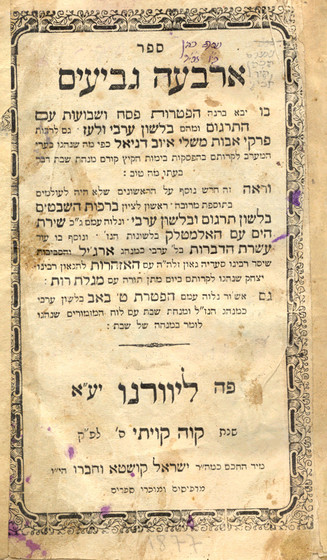 ספר
ארבעה גביעים
בו יבא ברנה הפטרות פסח ושבועות עם
התרגום ומהם בלשון ערבי ולעז גם לרבות
פרקי אבות משלי איוב דניאל כפי מה שנהגו בערי
המערב לקרותם בהפסקות בימות הקיץ קודם מנחת שבת דבר
בעתו מה טוב :
וראה זה חדש נוסף על הראשונים שלא היה לעולמים
בתוספת מרובה ראשון לציון ברכות השבטים
בלשון תרגום ובלשון ערבי ונלוה עמם ג״כ שירת
הים עם האלמטלק בלשונות הנז׳ ונוסף בו עוד
עשרת הדברות בל׳ ערבי כמנהג ארג׳יל והסביבות
שיסד רבינו סעדיה גאון זלה״ה עם האזהרות להגאון רבינו
יצחק שנהגו לקרותם ביום מתן תורה עם מגלת רות :
גם אשור נלוה עמם הפטרת ט׳ באב בלשון ערבי
כמנהג הנו״ל ומנחת שבת עם לוח המזמורים שנהגו
לומר במנחה של שבת :
פה ליוורנו יע״א
שנת קוה קויתי ס׳ לפ״ק
מיד החכם כמה״ר ישראל קושטא וחברו הי״ו
מדפיסים ומוכרי ספרים